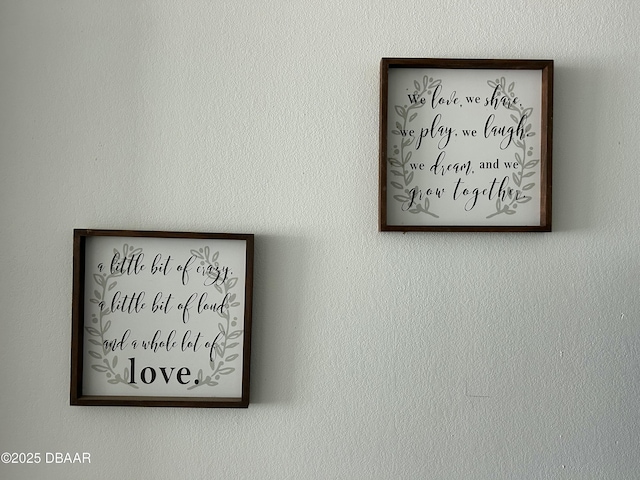 We love, we share,
we play, we laugh,
we dream, and we
grow together.
a little bit of crazy,
a little bit of loud
and a whole lot of
love.
©2025 DBAAR